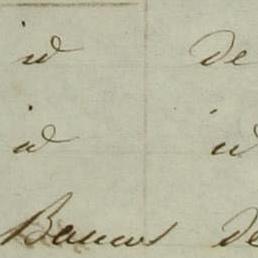 id De
id id
Bancos de